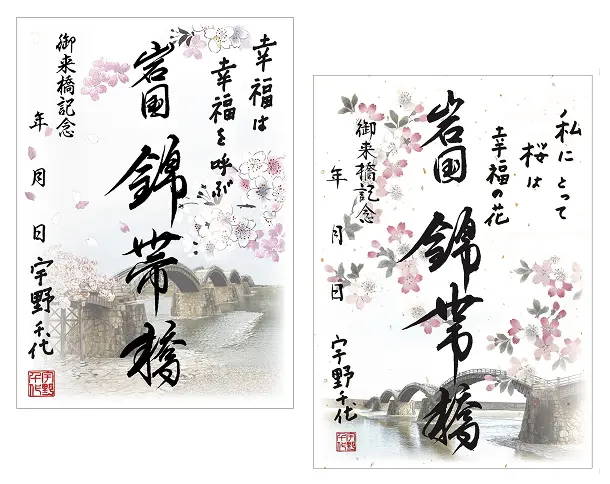 幸福は
幸福を呼ぶ
岩国
錦帯橋
御来橋記念
年 月 日
宇野千代
宇野千代
私にとって
桜は
幸福の花
岩国
錦帯橋
御来橋記念
年 月 日
宇野千代
宇野千代